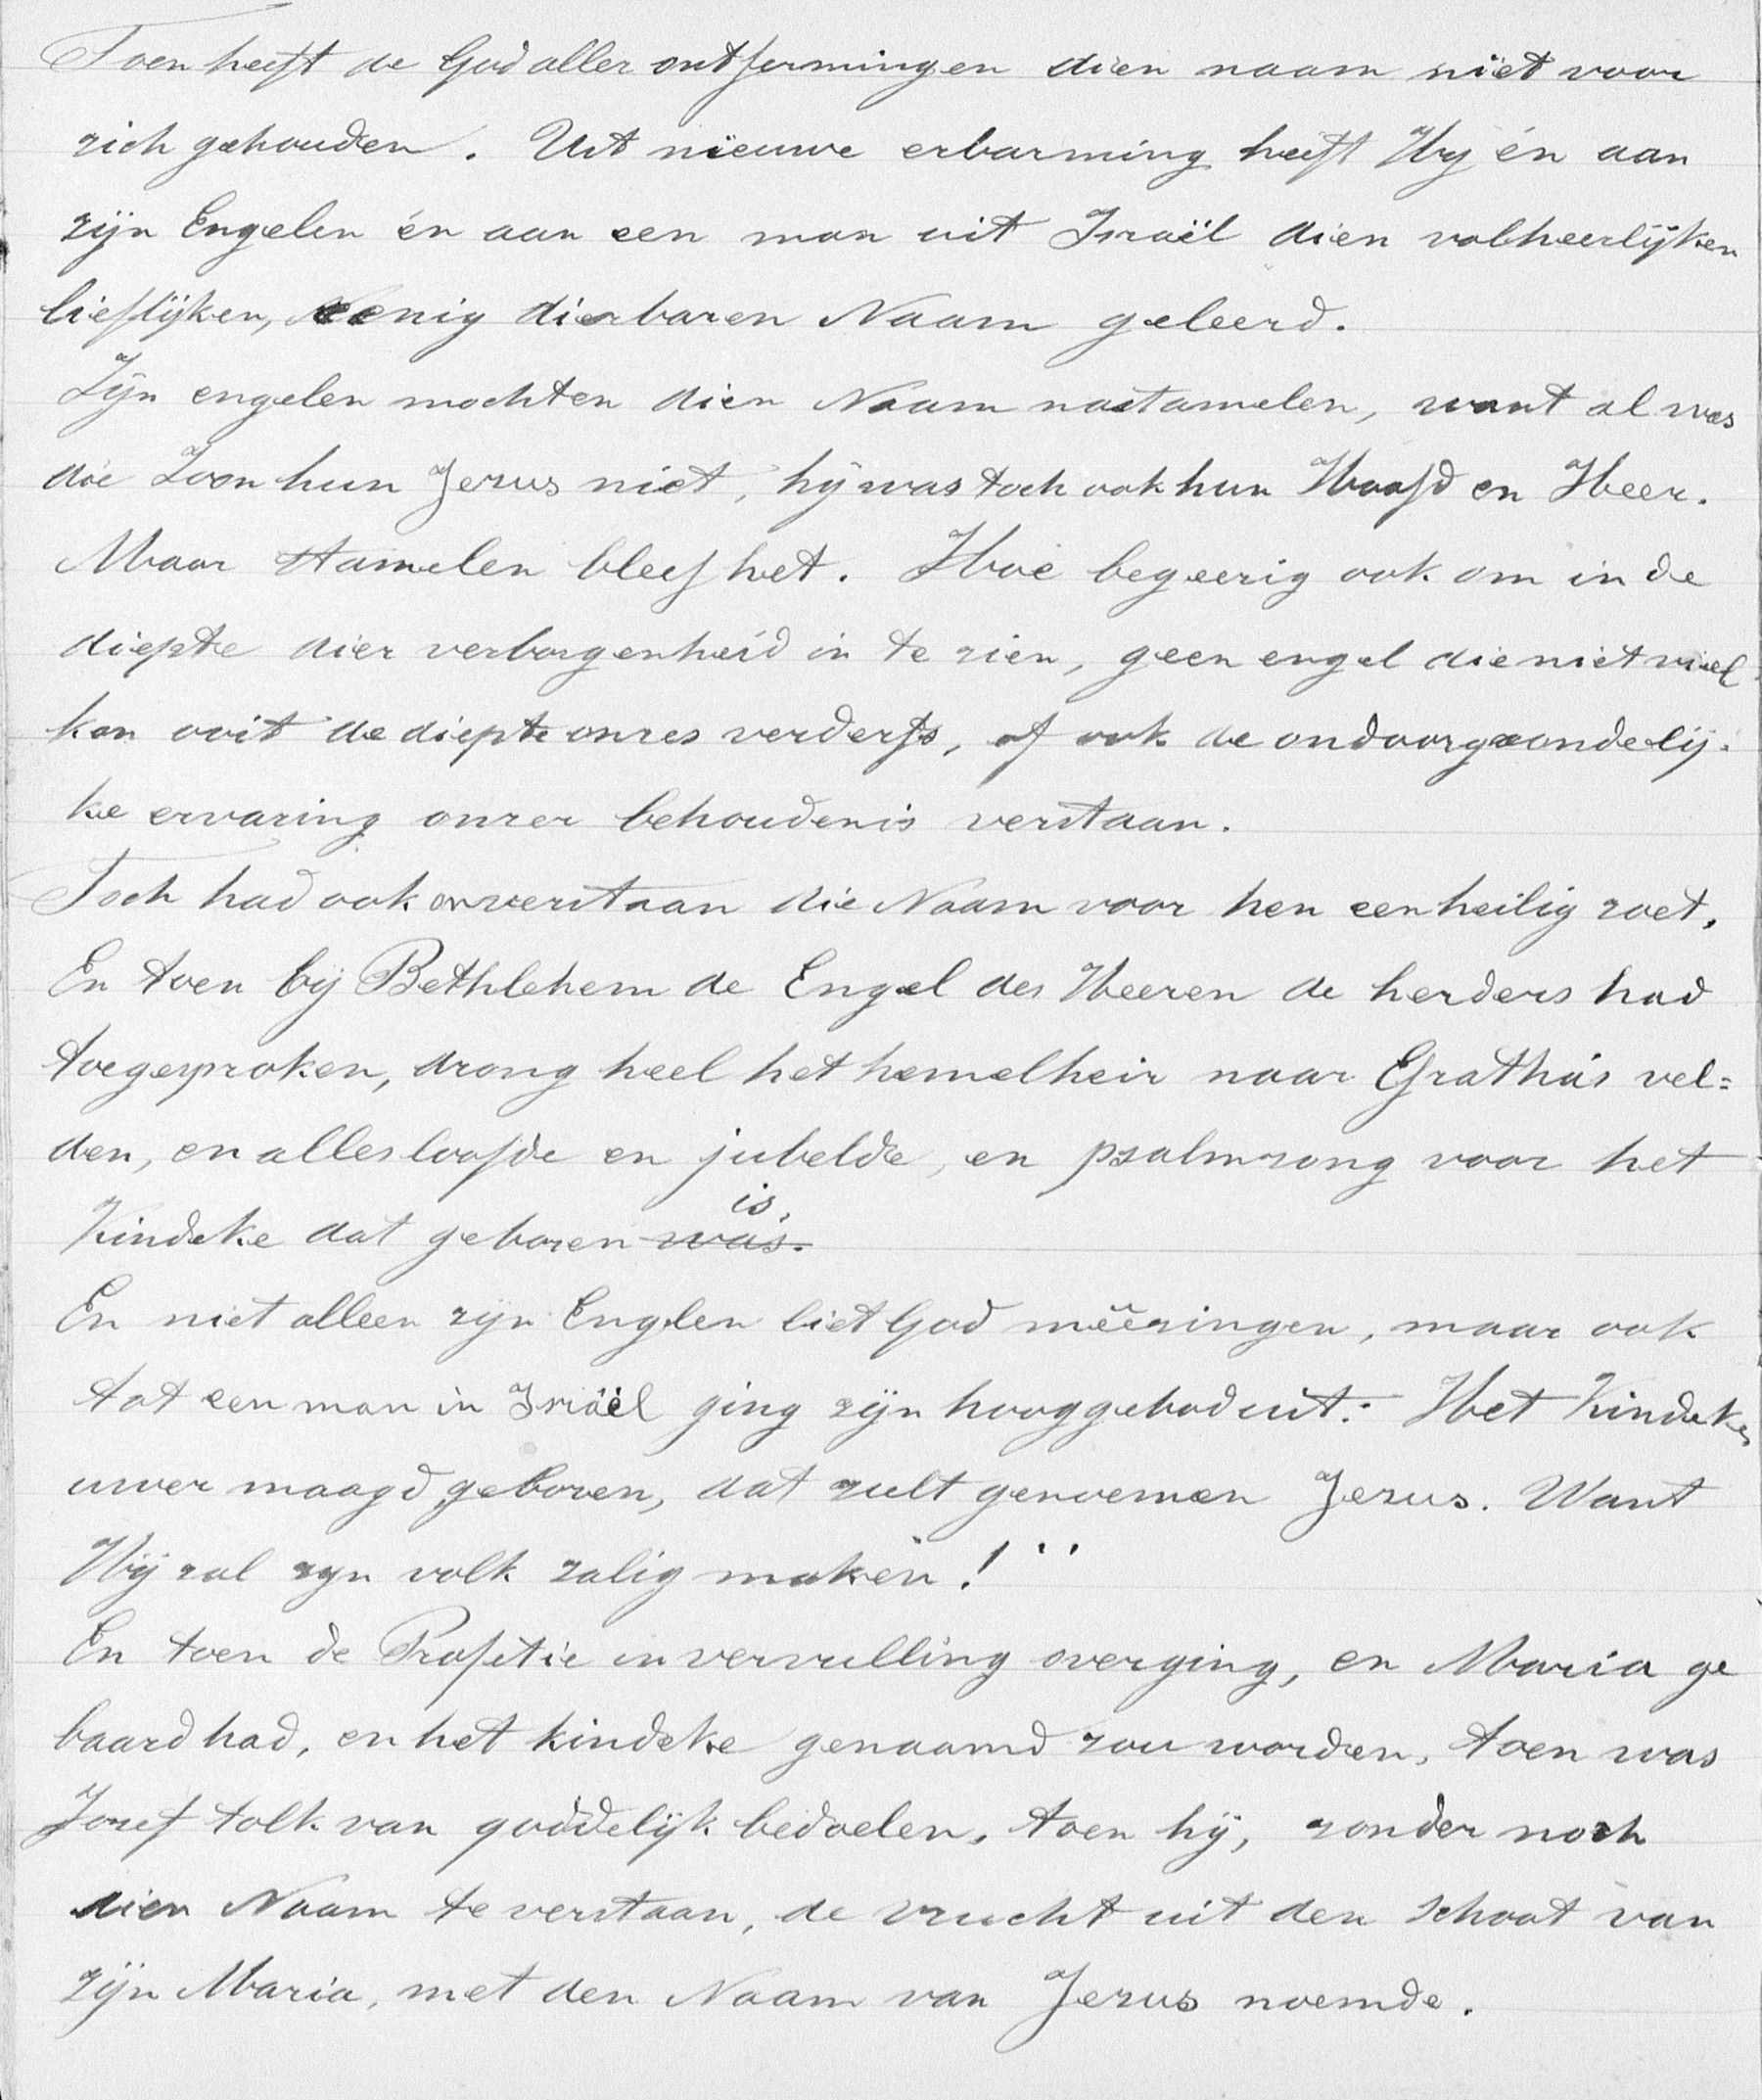 Toen heeft de God aller ontfermingen dien naam niet voor
zich gehouden. Uit nieuwe erbarming heeft Hij én aan
zijn Engelen én aan een man uit Israël dien volheerlijken
lieflijken, eenig dierbaren Naam geleerd.
Zijn engelen mochten dien Naam nastamelen, want al was
die Zoon hun Jezus niet, hij was toch ook hun Hoofd en Heer.
Maar stamelen bleef het. Hoe begeerig ook om in de
diepte dier verborgenheid in te zien, geen engel die niet viel
kan ooit de diepte onzes verderfs, of ook de ondoorgrondelij-
ke ervaring onzer behoudenis verstaan.
Toch had ook onverstaan die Naam voor hen een heilig zoet.
En toen bij Bethlehem de Engel des Heeren de herders had
toegesproken, drong heel het hemelheir naar Efratha's vel=
den, en alles loofde en jubelde, en psalmzong voor het
is.
Kindeke dat geboren was.
En niet alleen zijn Englen liet God meêzingen, maar ook
tot een man in Israël ging zijn hooggebod uit: Het Kindeke,
uwer maagd geboren, dat zult genoemen Jezus. Want
Hij zal zijn volk zalig maken!"
En toen de Profetie in vervulling overging, en Maria ge
baard had, en het kindeke genaamd zou worden, toen was
Jozef tolk van goddelijk bedoelen, toen hij, zonder noch
dien Naam te verstaan, de vrucht uit den schoot van
zijn Maria, met den Naam van Jezus noemde.